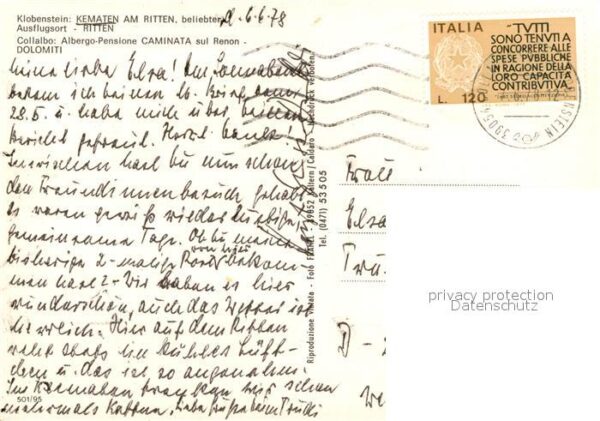 Klobenstein: KEMATEN AM RITTEN, beliebter
Ausflugsort - RITTEN
Collalbo: Albergo-Pensione CAMINATA sul Renon -
DOLOMITI
d. 6.6.78
Meine liebe Elsa! Am Sonnabend
bekam ich deinen lb. Brief vom
28.5. u. habe mich über deinen
Bericht gefreut. Herzl. Dank!
Inzwischen hast du nun schon
den Freundinnenbesuch gehabt
es waren gewiß wieder
gemeinsame Tage. Ob du meine
bisherige 2-malige Post bekom
von hier
men hast? Wir haben es hier
wunderschön, auch das Wetter ist
herrlich. Hier auf dem Ritten
weht stets ein kühles Lüft-
chen u. das ist so angenehm.
Im Kematen tranken wir schon
mehrmals Kaffee. Liebe
501/95
Riproduzione vietata - Foto
39052 Kaltern/Caldaro -
Tel. (0471) 53505
ITALIA
L. 120
"TUTTI
SONO TENUTI A
CONCORRERE ALLE
SPESE PUBBLICHE
IN RAGIONE DELLA
LORO CAPACITÀ
CONTRIBUTIVA"
39054
Frau
Elsa
D -
privacy protection
Datenschutz